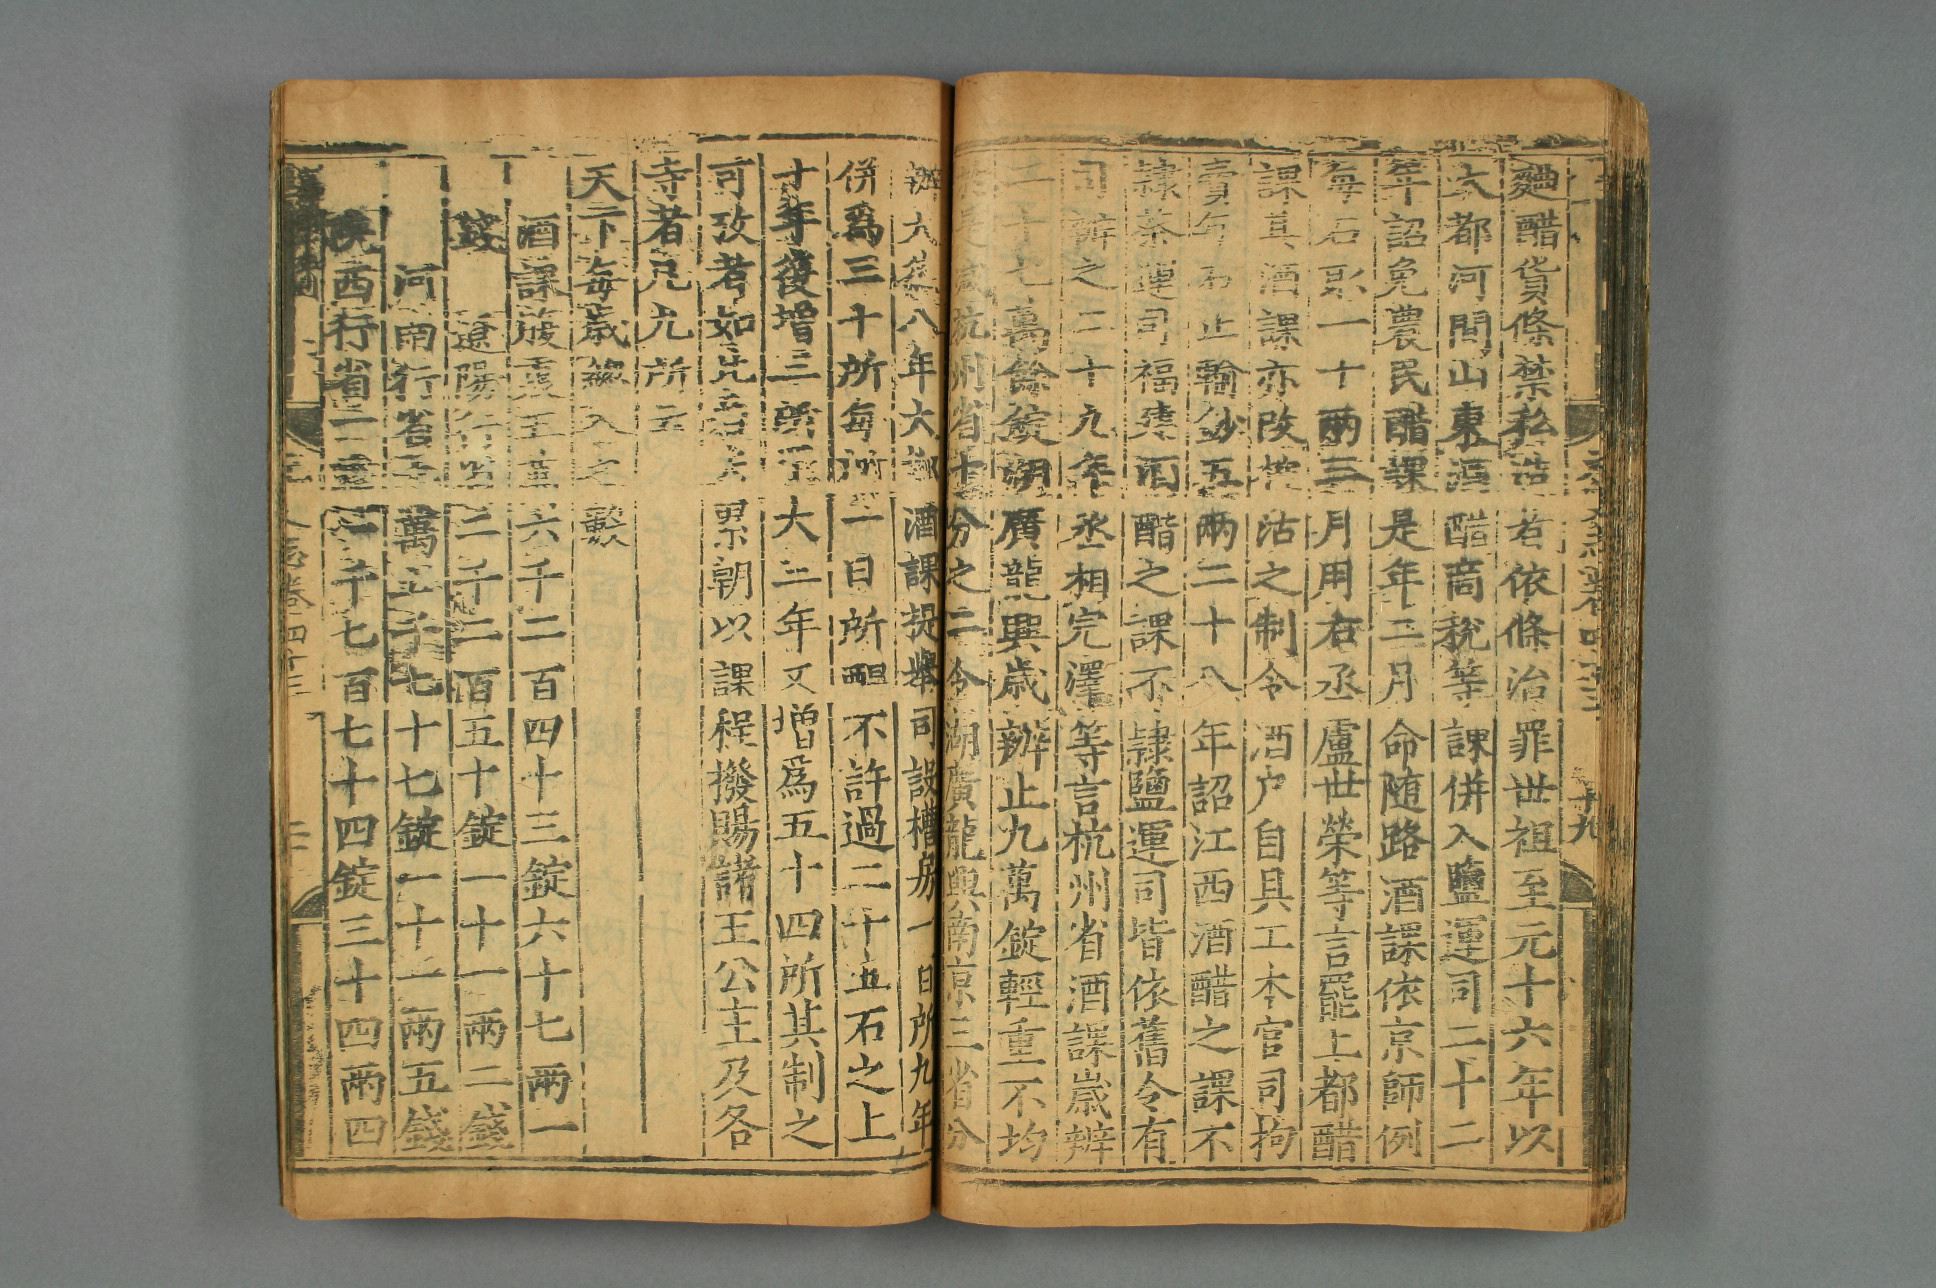 麯醋貨條禁私造者依條治罪世祖至元十六年以
大都河間山東酒醋商稅等課併入鹽運司二十二
年詔免農民醋課是年二月命随路酒課依京師例
每石取一十兩三月用右丞盧世榮等言罷上都醋
課其酒課亦改榷沽之制令酒户自具工本官司拘
賣每石止輸鈔五兩二十八年詔江西酒醋之課不
隷茶運司福建酒醋之課不隷鹽運司皆依舊令有
司辦之二十九年丞相完澤等言杭州省酒課歲辦
二十七萬餘錠湖廣龍興歲辦止九萬錠輕重不均
於是減杭州省十分之二令湖廣龍興南京三省分
辦大徳八年大都酒課提舉司設槽房一百所九年
併爲三十所每所一日所醞不許過二十五石之上
十年復增三所至大三年又增爲五十四所其制之
可攷者如此若夫累朝以課程撥賜諸王公主及各
寺者凡九所云
天下每歲總入之數
酒課腹裏五萬六千二百四十三錠六十七兩一
錢 遼陽行省二千二百五十錠一十一兩二錢
河南行省七萬五千七十七錠一十一兩五錢
陝西行省一萬一千七百七十四錠三十四兩四
元史志卷四十三
十九
志卷四十三
二十